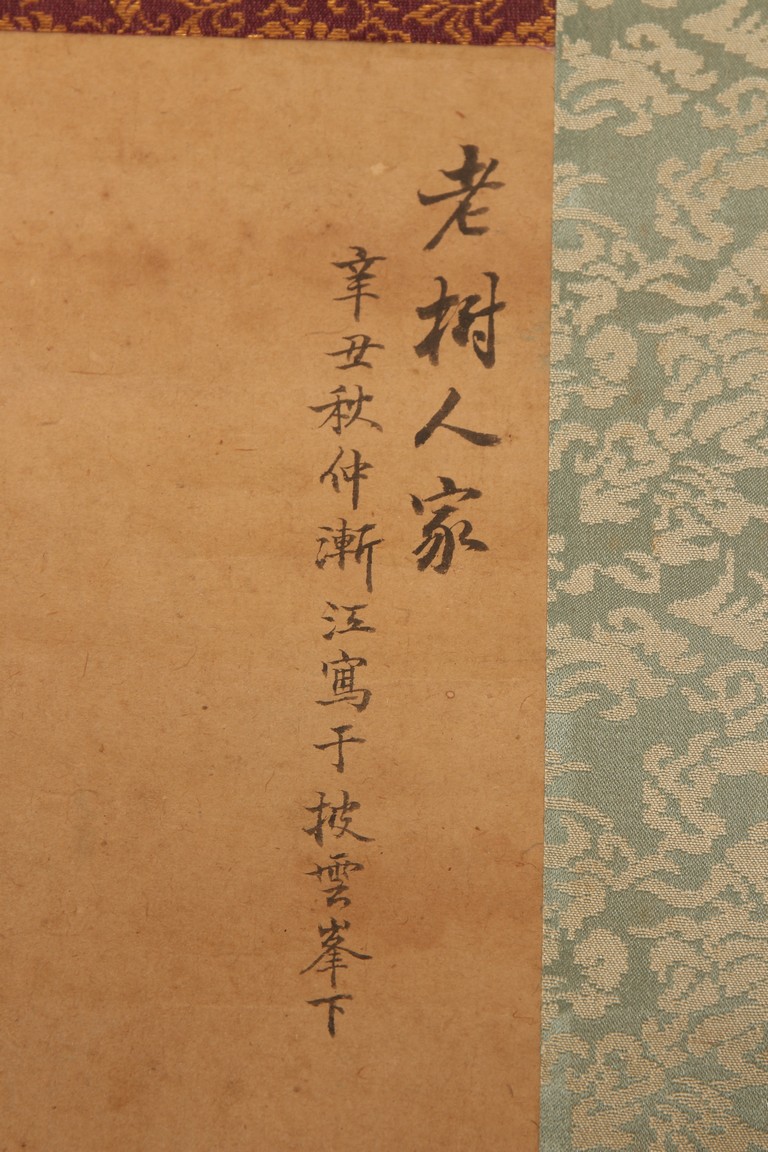 老樹人家
辛丑秋仲漸江寫于披雲峯下